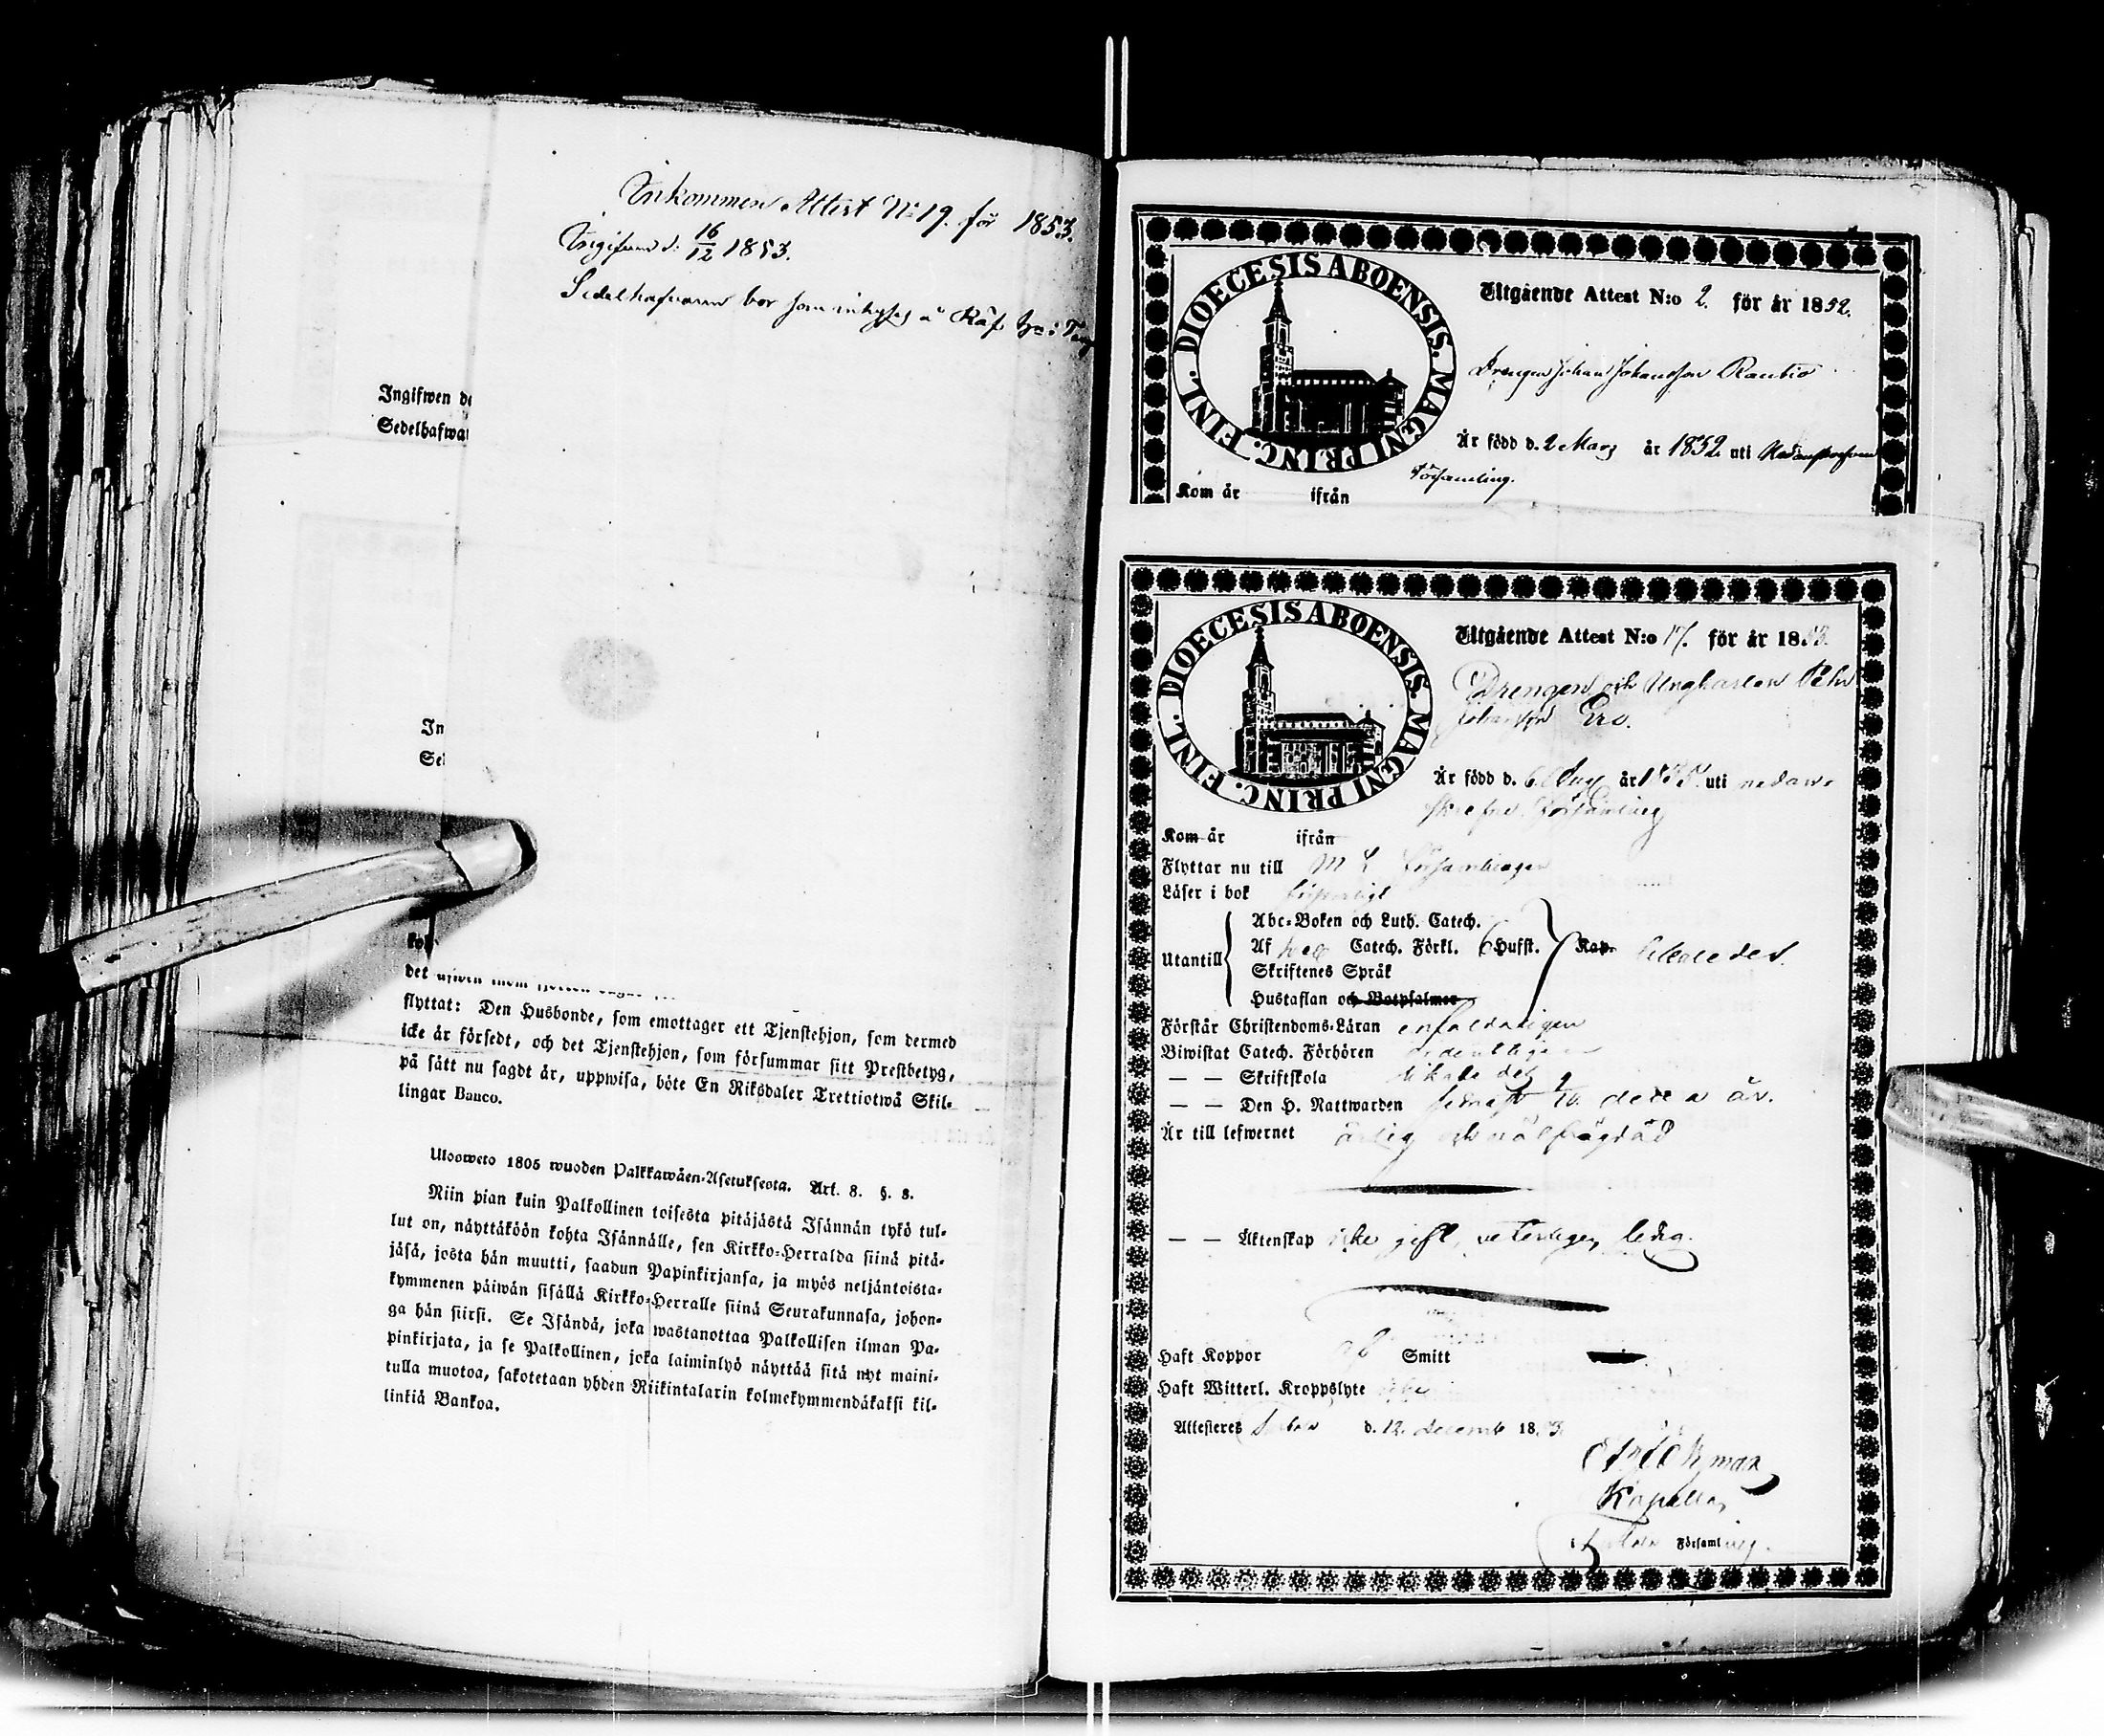 Inkommen Attest No 19. för 1853.
Ingifven d. 16/12 1853.
Sedelhafvaren bor som inhyses å
Ingifwen de
Sedelhafwa
In
Se
det
flyttat: Den Husbonde, som emottager ett Tjenstehjon, som dermed
icke är försedt, och det Tjenstehjon, som försummar sitt Prestbetyg,
på sätt nu sagdt är, uppwisa, böte En Riksdaler Trettiotwå Skil-
lingar Banco.
Ulosweto 1805 wuoden Palkkawäen-Asetuksesta. Art. 8. §. 8.
Niin pian kuin Palkollinen toisesta pitäjästä Isännän tykö tul-
lut on, näyttäköön kohta Isännälle, sen Kirkko-Herralda siinä pitä-
jäsä, josta hän muutti, saadun Papinkirjansa, ja myös neljäntoista-
kymmenen päiwän sisällä Kirkko-Herralle siinä Seurakunnasa, johon-
ga hän siirsi. Se Isändä, joka wastanottaa Palkollisen ilman Pa-
pinkirjata, ja se Palkollinen, joka laiminlyö näyttää sitä nyt maini-
tulla muotoa, sakotetaan yhden Riikintalarin kolmekymmendäkaksi kil-
linkiä Bankoa.
DIOECESIS ABOENSIS. MAGNI PRINC. FINL.
Utgående Attest N:o 2. för år 1852.
Drengen Johan Johansson Rautio
Är född d. 2 Mars år 1832 uti
Församling.
Kom år ifrån
DIOECESIS ABOENSIS. MAGNI PRINC. FINL.
Utgående Attest N:o 17. för år 1853.
Drengen och Ynglingen Pehr
Johansson
Är född d. 6 Aug år 1835. uti nedan-
skrefne Församling
Kom år ifrån
Flyttar nu till M L Församlingen
Läser i bok försvarligt
Utantill
Abc-Boken och Luth. Catech.
Af Catech. Förkl. Hufst. Kap. likaledes.
Skriftenes Språk
Hustaflan och Botpsalmer
Förstår Christendoms-Läran enfaldeligen
Biwistat Catech. Förhören ordentligen
— — Skriftskola likaledes
— — Den H. Nattwarden sednast
Är till lefwernet ärlig och välfrägdad
— — Äktenskap icke gift, veterligen ledig.
Haft Koppor af Smitt
Haft Witterl. Kroppslyte icke
Attesteres d. 12. december 1853.
Kapellan
Församling.